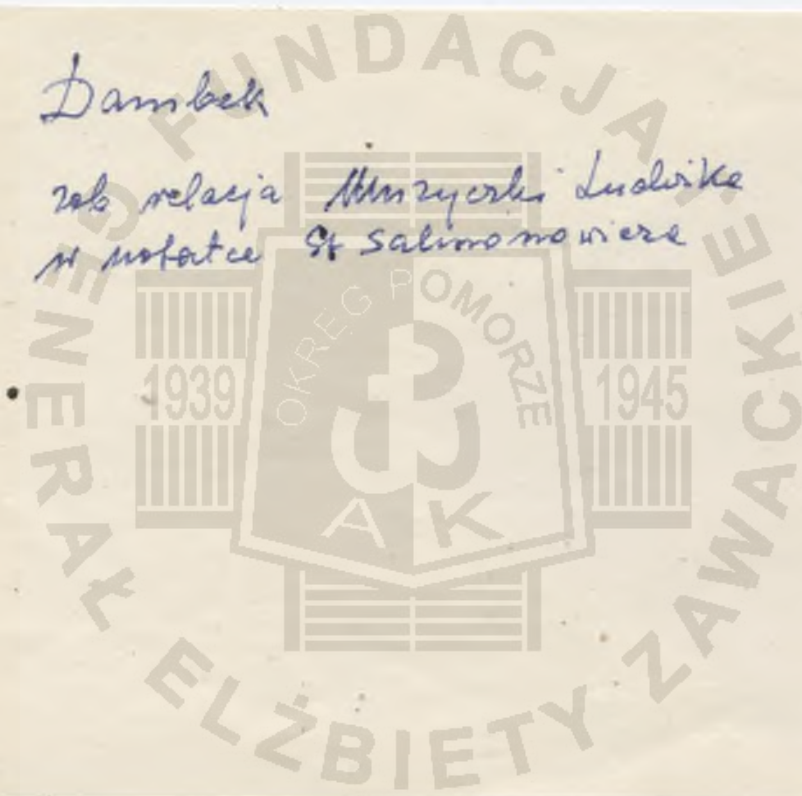 Dambek
zob relacja Muzyczki Ludwika
w notatce St Salmonowicza
FUNDACJA
GENERAŁ ELŻBIETY ZAWACKIEJ
OKRĘG POMORZE
1939
1945
AK